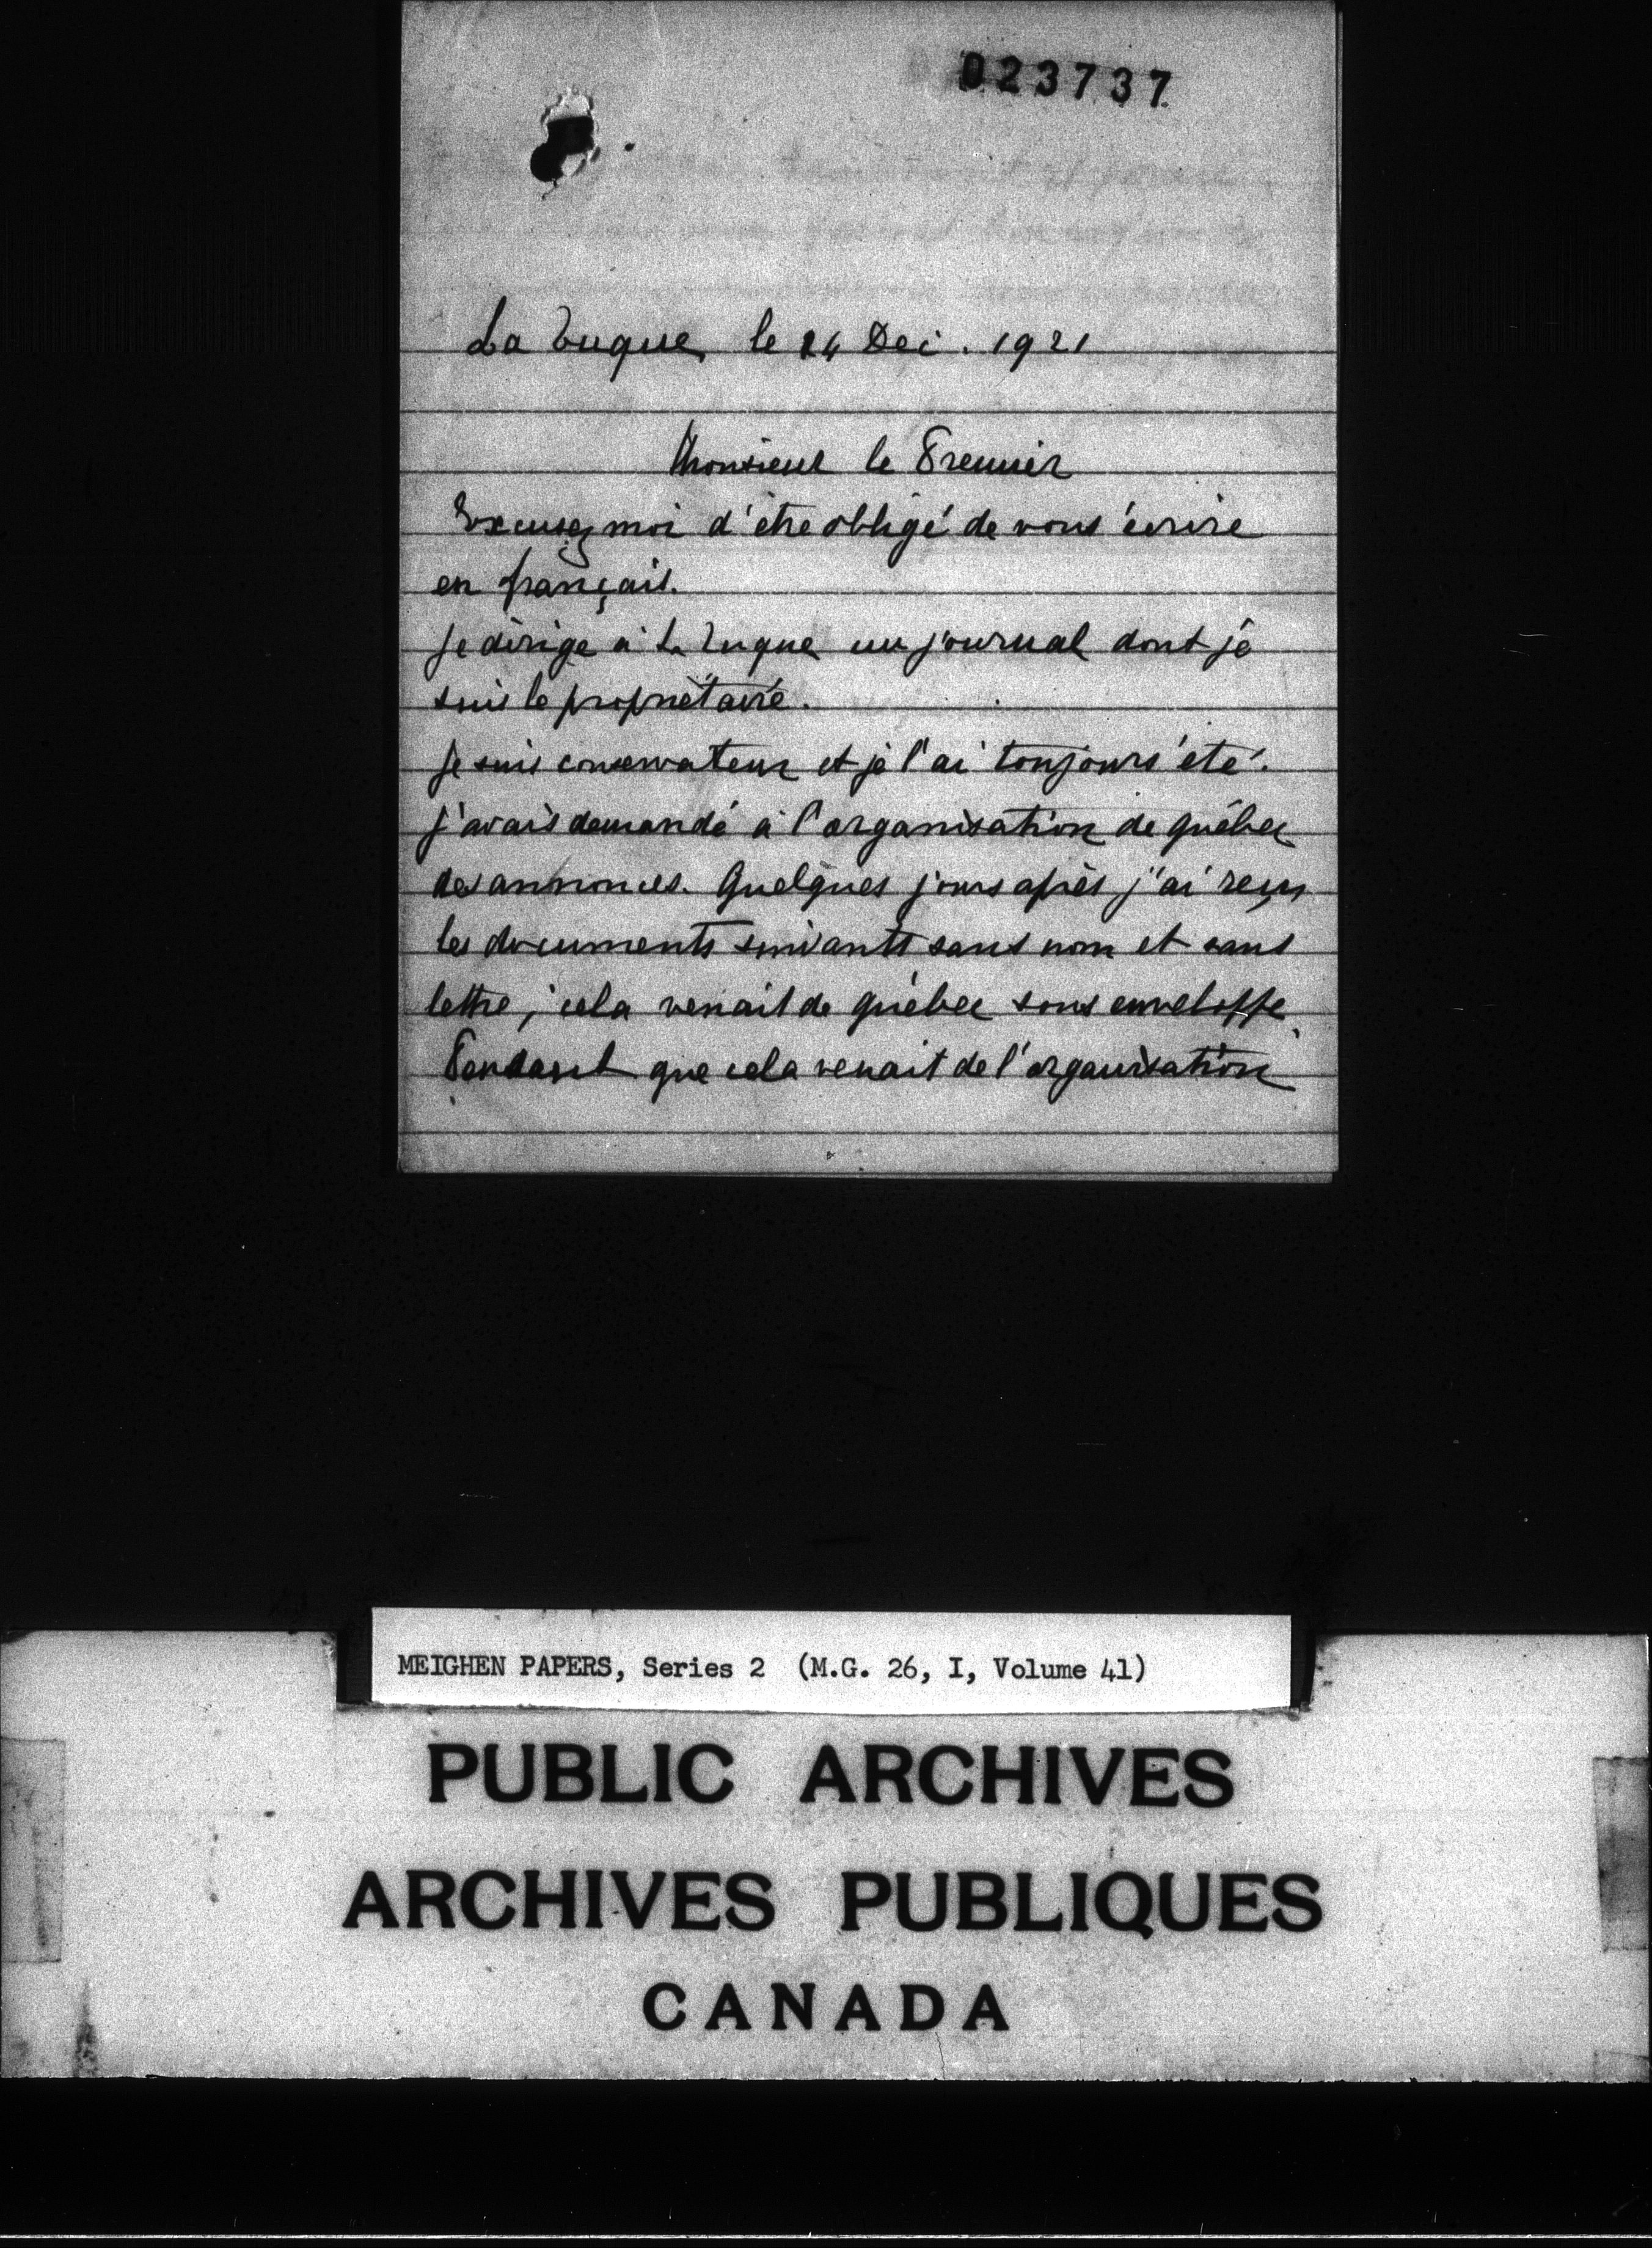 023737
La Tuque, le 24 Dec. 1921
Monsieur le Premier
Excusez moi d'être obligé de vous écrire
en français.
Je dirige à La Tuque un journal dont je
suis le propriétaire.
Je suis conservateur et je l'ai toujours été.
J'avais demandé à l'organisation de québec
des annonces. Quelques jours après j'ai reçu
les documents suivants sans nom et sans
lettre, cela venait de québec sous enveloppe
Pensant que cela venait de l'organisation
MEIGHEN PAPERS, Series 2 (M.G. 26, I, Volume 41)
PUBLIC ARCHIVES
ARCHIVES PUBLIQUES
CANADA